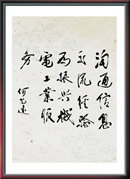 沟通信息
交流经验
为振兴机
电工业服
务
何光远